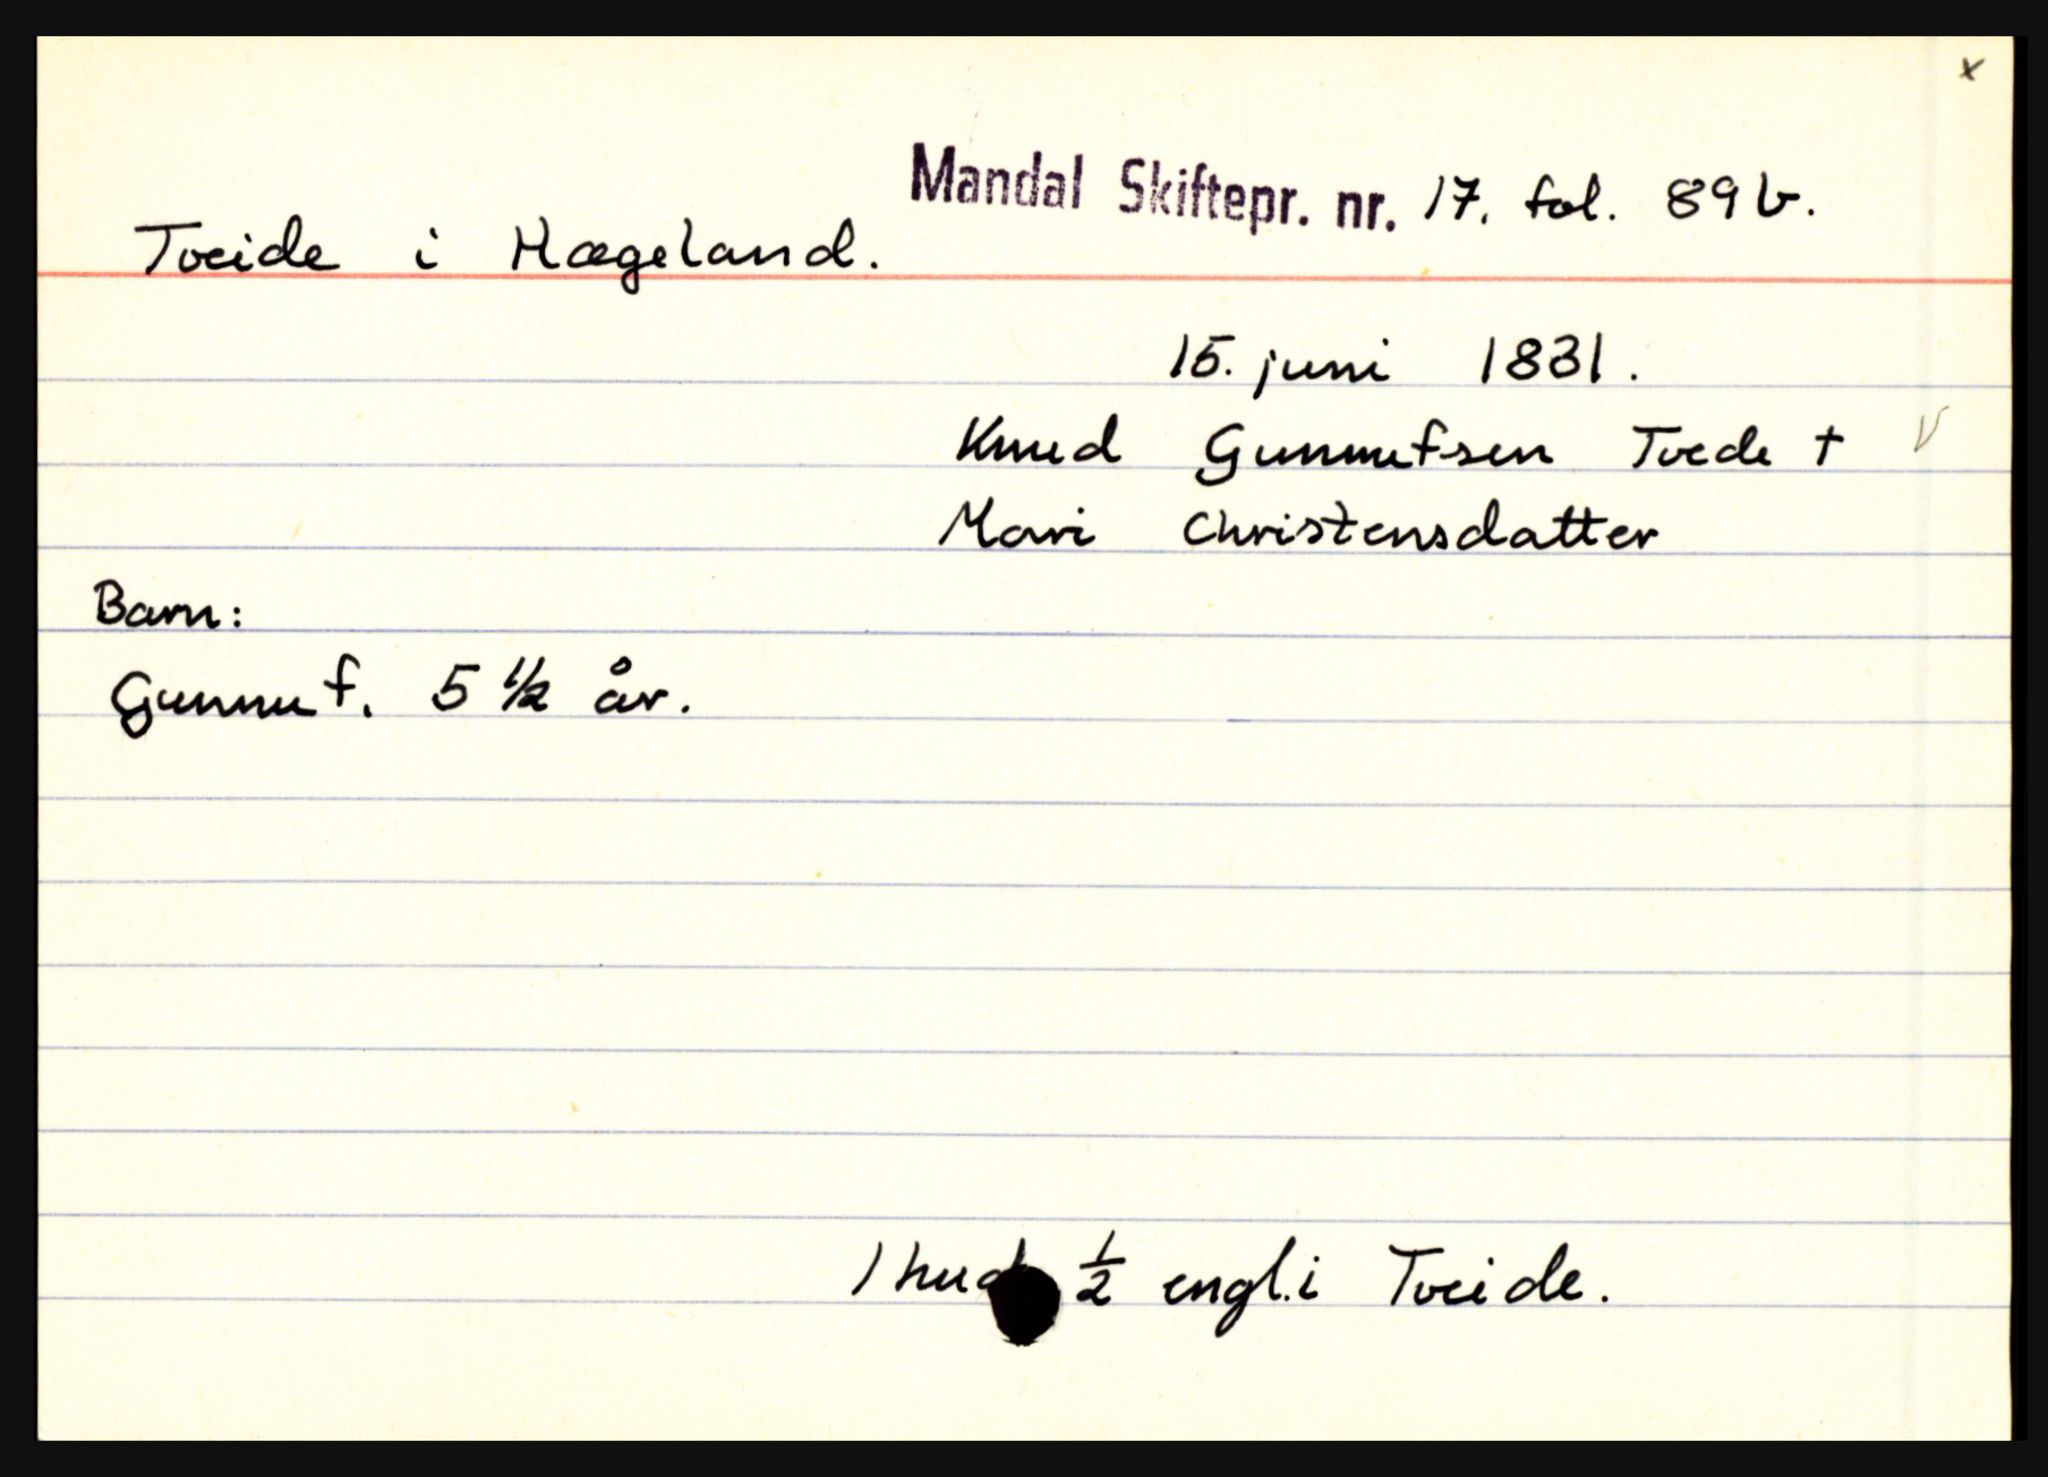 x
Mandal Skiftepr. nr. 17. fol. 89b.
Tveide i Hægeland.
15. juni 1831.
Knud Gunnufsen Tvede † V
Mari Christensdatter
Barn:
Gunnuf. 5 1/2 år.
1 hud 1/2 engl. i Tveide.